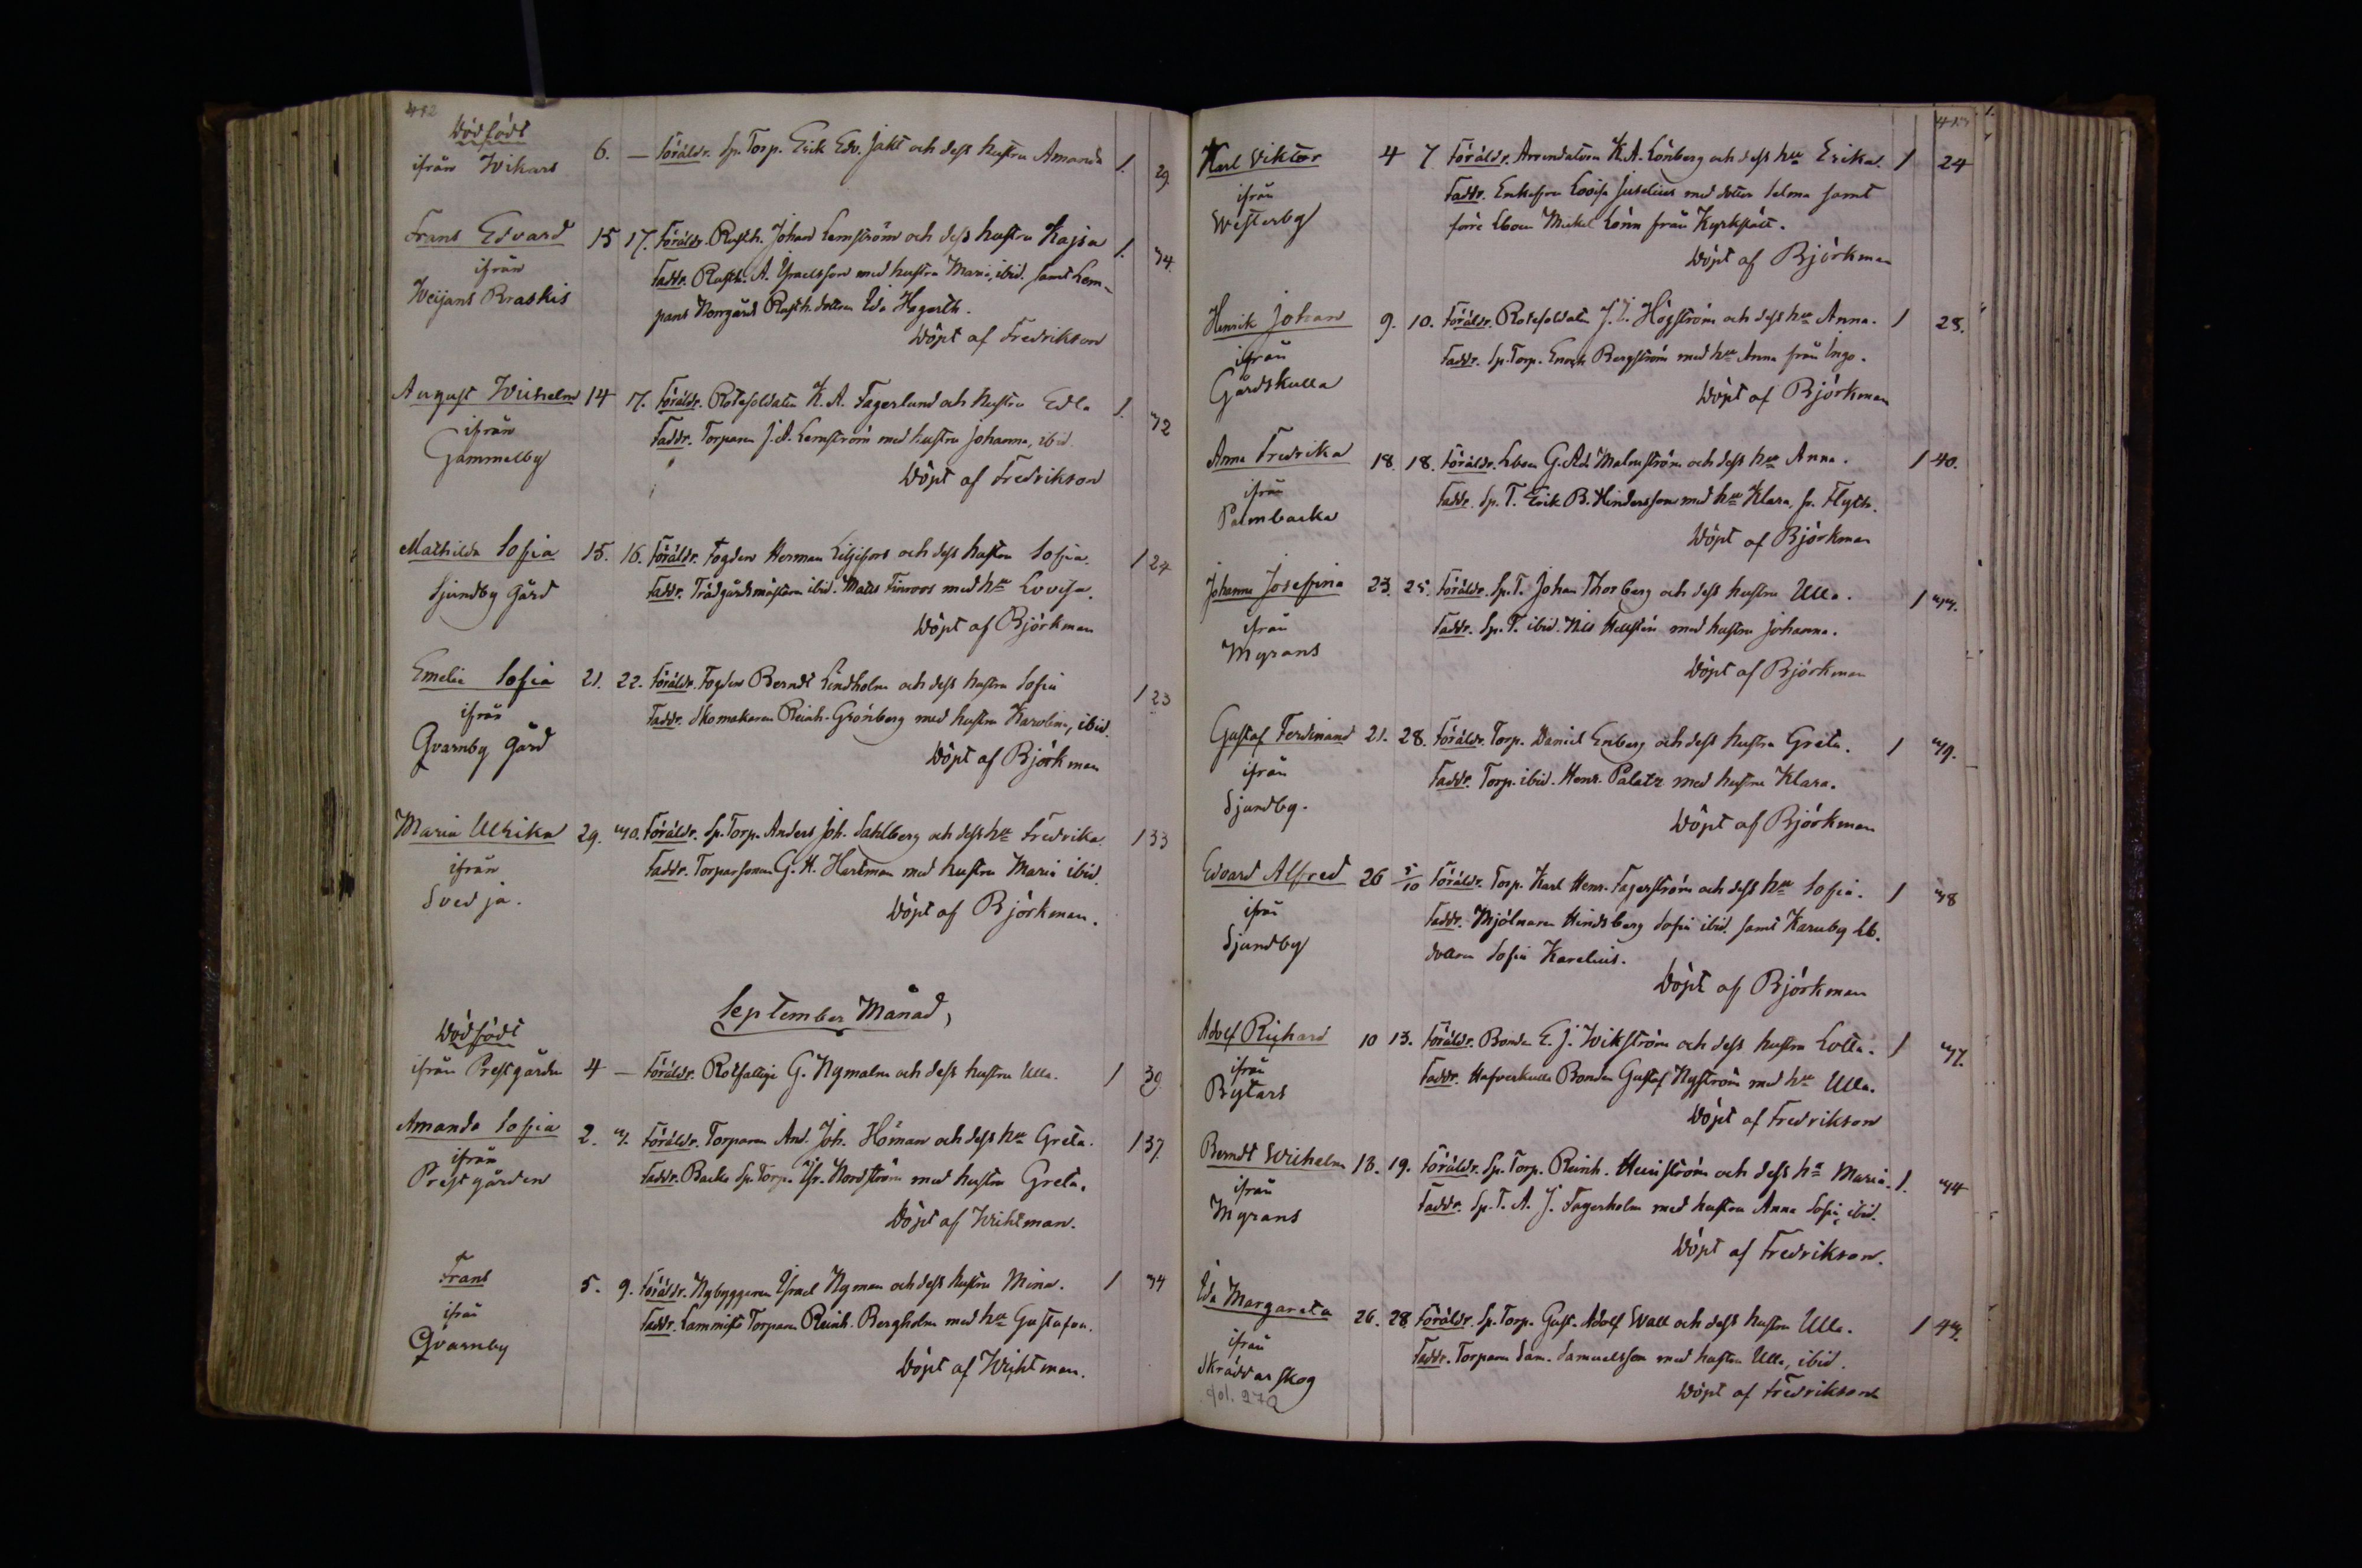 412
Dödfödt
ifrån Wikars 6. — Föräldr. Sp. Torp. Erik Edv. Jakt och dess hustru Amanda 1. 29.
Frans Edvard 15 17. Föräldr. Rusth. Johan Lemström och dess hustru Kajsa 1. 34.
ifrån Faddr. Rusth. A. Israelsson med hustru Maria, ibid. samt Lem-
Weijans Braskis pans Norrgårds Rusth. dottern Ida Hagerth.
Döpt af Fredrikson
August Wilhelm 14 17. Föräldr. Rotesoldaten K. A. Fagerlund och hustru Edla 1. 32
ifrån Faddr. Torparen J. A. Lemström med hustru Johanna, ibid.
Gammelby
Döpt af Fredrikson
Mathilda Sofia 15. 16. Föräldr. Fogden Herman Liljefors och dess hustru Sofia. 1 24
Sjundby Gård Faddr. Trädgårdsmästaren ibid. Mats Finroos med hu Lovisa.
Döpt af Björkman
Emelie Sofia 21. 22. Föräldr. Fogden Berndt Lindholm och dess hustru Sofia 1 23
ifrån Faddr. Skomakaren Reinh. Grönberg med hustru Karolina, ibid.
Qvarnby Gård
Döpt af Björkman
Maria Ulrika 29. 30. Föräldr. Sp. Torp. Anders Joh. Sahlberg och dess hu Fredrika. 1 33
ifrån Faddr. Torparsonen G. H. Hartman med hustru Maria ibid.
Svedja.
Döpt af Björkman.
September Månad,
Dödfödt
ifrån Prestgården 4 — Föräldr. Rotfattige G. Nymalm och dess hustru Ulla. 1 39.
Amanda Sofia 2. 3. Föräldr. Torparen And. Joh. Höman och dess hu Greta. 1 37.
ifrån Faddr. Backa Sp. Torp. Isr. Nordström med hustru Greta.
Prestgården
Döpt af Wichtman.
Frans 5. 9. Föräldr. Nybyggaren Israel Nyman och dess hustru Mina. 1 34
ifrån Faddr. Torparen Reinh. Bergholm med hu Gustafva.
Qvarnby
Döpt af Wichtman.
413
Karl Viktor 4 7 Föräldr. Arrendatorn K. A. Lönberg och dess hu Erika. 1 24
ifrån Faddr. Enkefru Lovisa Juselius med dotter Selma samt
Westerby förre Lboen Mickel Lönn från Kyrkslätt.
Döpt af Björkman
Henrik Johan 9. 10. Föräldr. Rotesoldaten J. Högström och dess hu Anna. 1 28.
ifrån Faddr. Sp. Torp. Enock Bergström med hu Anna från Ingo.
Gårdskulla
Döpt af Björkman
Anna Fredrika 18. 18. Föräldr. Lboen G. Ad. Malmström och dess hu Anna. 1 40.
ifrån Faddr. Sp. T. Erik B. Hindersson med hu Klara, fr. Flyth.
Palmbacka
Döpt af Björkman
Johanna Josefina 23. 25. Föräldr. Sp. T. Johan Thorberg och dess hustru Ulla. 1 33.
ifrån Faddr. Sp. T. ibid. Nils Hellstén med hustru Johanna.
Myrans
Döpt af Björkman
Gustaf Ferdinand 21. 28. Föräldr. Torp. Daniel Enberg och dess hustru Greta. 1 39.
ifrån Faddr. Torp. ibid. Henr. Palatz med hustru Klara.
Sjundby.
Döpt af Björkman
Edvard Alfred 26 5/10 Föräldr. Torp. Karl Henr. Fagerström och dess hu Sofia. 1 38
ifrån Faddr. Mjölnaren Hindsberg Sofia ibid. samt Karuby Lb.
Sjundby dottren Sofia Karelius.
Döpt af Björkman
Adolf Richard 10 13. Föräldr. Bonden E. J. Wikström och dess hustru Lotta. 1 37.
ifrån Faddr. Hafverkulla Bonden Gustaf Nyström med hu Ulla.
Bytars
Döpt af Fredrikson
Berndt Wilhelm 18. 19. Föräldr. Sp. Torp. Reinh. Heinström och dess hu Maria. 1. 34
ifrån Faddr. Sp. T. A. J. Fagerholm med hustru Anna Sofia, ibid.
Myrans
Döpt af Fredrikson.
Ida Margareta 26. 28. Föräldr. Sp. Torp. Gust. Adolf Wall och dess hustru Ulla. 1 43.
ifrån Faddr. Torparen Sam. Samuelsson med hustru Ulla, ibid.
Skräddarskog
Döpt af Fredrikson
fol. 270